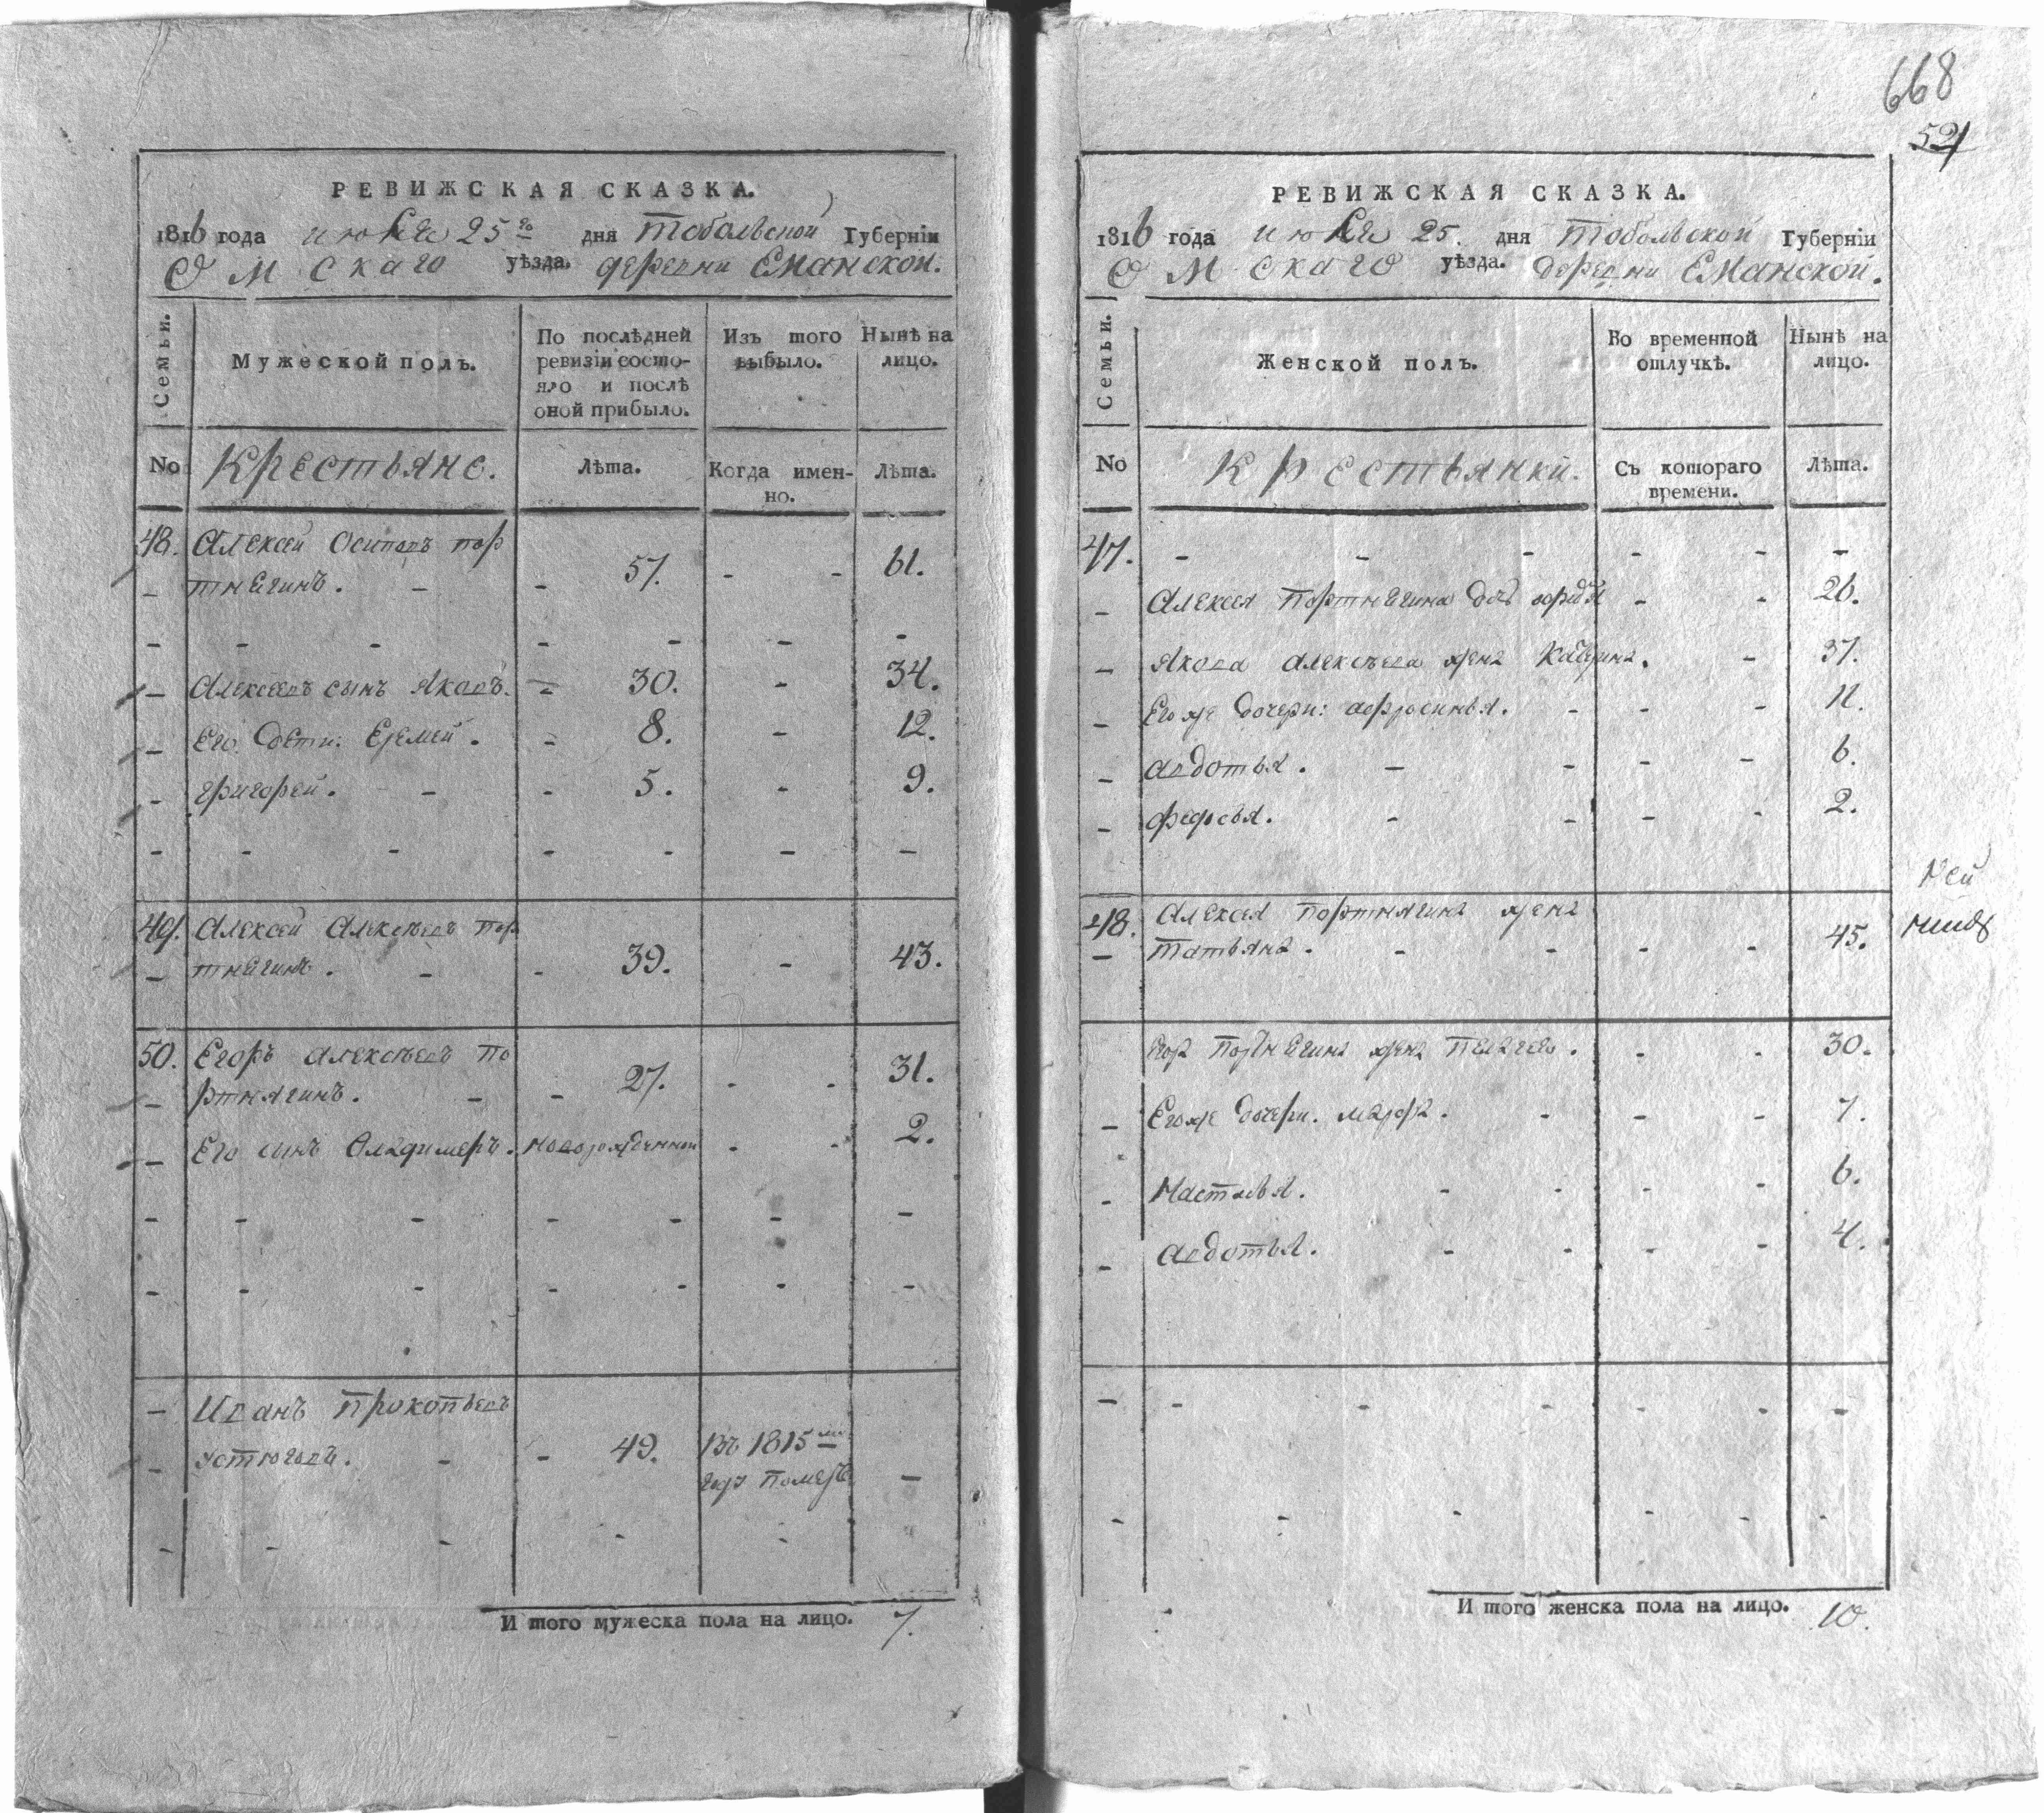 668
521
РЕВИЖСКАЯ СКАЗКА.
1816 года июля 25го дня Тобольской Губерніи
Омскаго уѣзда. деревни Еманской.
Семьи.
Мужеской полъ.
По послѣдней ревизіи состояло и послѣ оной прибыло.
Изъ того выбыло.
Нынѣ на лицо.
No
Крестьяне.
Лѣта.
Когда именно.
Лѣта.
48. Алексей Осиповъ пор
- тнегинъ. - - 57. - - 61.
- - - - - - -
- Алексеевъ сынъ Яковъ. - 30. - 34.
- Его дети: Еремей. - 8. - 12.
- григорей. - - 5. - 9.
- - - - - - -
49. Алексей Алексѣевъ пор
- тнегинъ. - - 39. - 43.
50. Егоръ алексѣевъ по
- ртнягинъ. - - 27. - - 31.
- Его сынъ Владимеръ. новорожденной - - 2.
- - - - - - -
- - - - - - -
- Иванъ Прокопьевъ
- устюговъ. - - 49. Въ 1815м
году померъ -
- - - - -
И того мужеска пола на лицо. 7.
РЕВИЖСКАЯ СКАЗКА.
1816 года июля 25. дня Тобольской Губерніи
Омскаго уѣзда. деревни Еманской.
Семьи.
Женской полъ.
Во временной отлучкѣ.
Нынѣ на лицо.
No
Крестьянки.
Съ котораго времени.
Лѣта.
47. - - - - - -
- Алексея Портнегина дочь - - 26.
- Якова алексѣева жена Катерина. - 37.
- Его же дочери: афросинья. - - - 11.
- авдотья. - - - - 6.
- федосья. - - - - 2.
48. Алексея портнягина жена
- Татьяна. - - - - 45.
Егора Портнегина жена Пелагея. - - 30.
- Его же дочери. марфа. - - - 7.
- Настасья. - - - - 6.
- авдотья. - - - - 4.
- - - - - - -
- - - - - -
И того женска пола на лицо. 10.